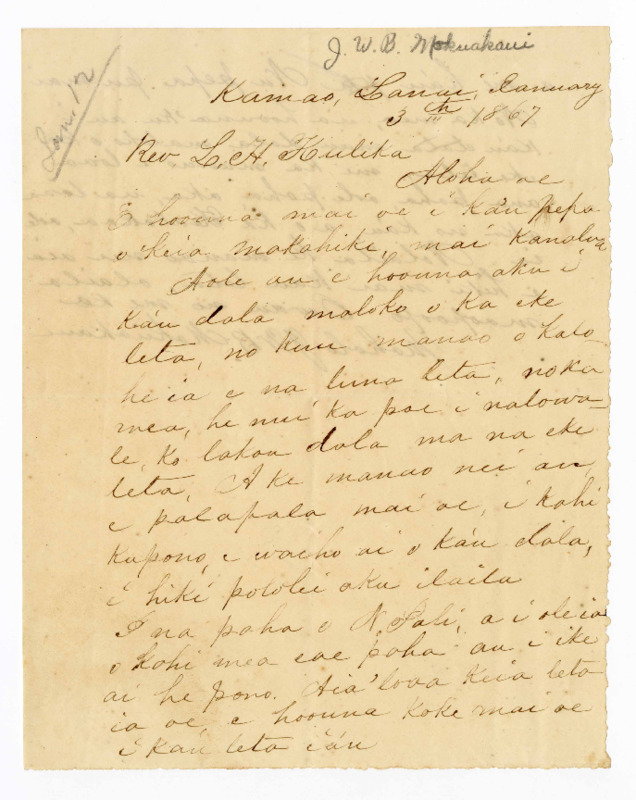 J. W. B. Mokuakaui
Jan. 12
Kamao, Lanai, January
3th 1867
Rev L. H. Kulika
Aloha oe
E hoouna mai oe i kau pepa
o keia makahiki, mai kanalua
Aole au e hoouna aku i
kau dala maloko o ka eke
leta, no kuu manao o kalo-
he ia e na luna leta, no ka
mea, he nui ka poe i nalowa-
le, ko lakou dala ma na eke
leta, A ke manao nei au,
e palapala mai oe, i kahi
kupono, e waiho ai o kau dala,
i hiki pololei aku ilaila
I na paha o N. Pali, a i ole ia
o kahi mea eae paha au i ike
ai he pono. Aia loaa keia leta
ia oe, e hoouna koke mai oe
i kau leta i'au